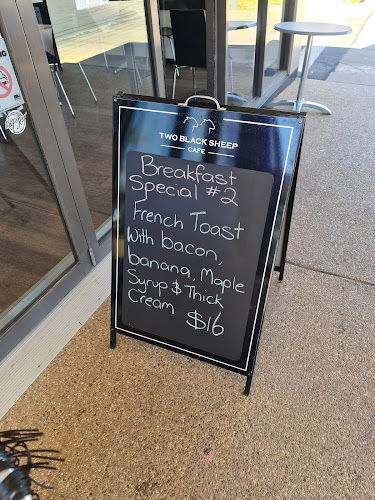 TWO BLACK SHEEP
CAFE
Breakfast
Special #2
French Toast
With bacon,
banana, Maple
Syrup & Thick
Cream $16